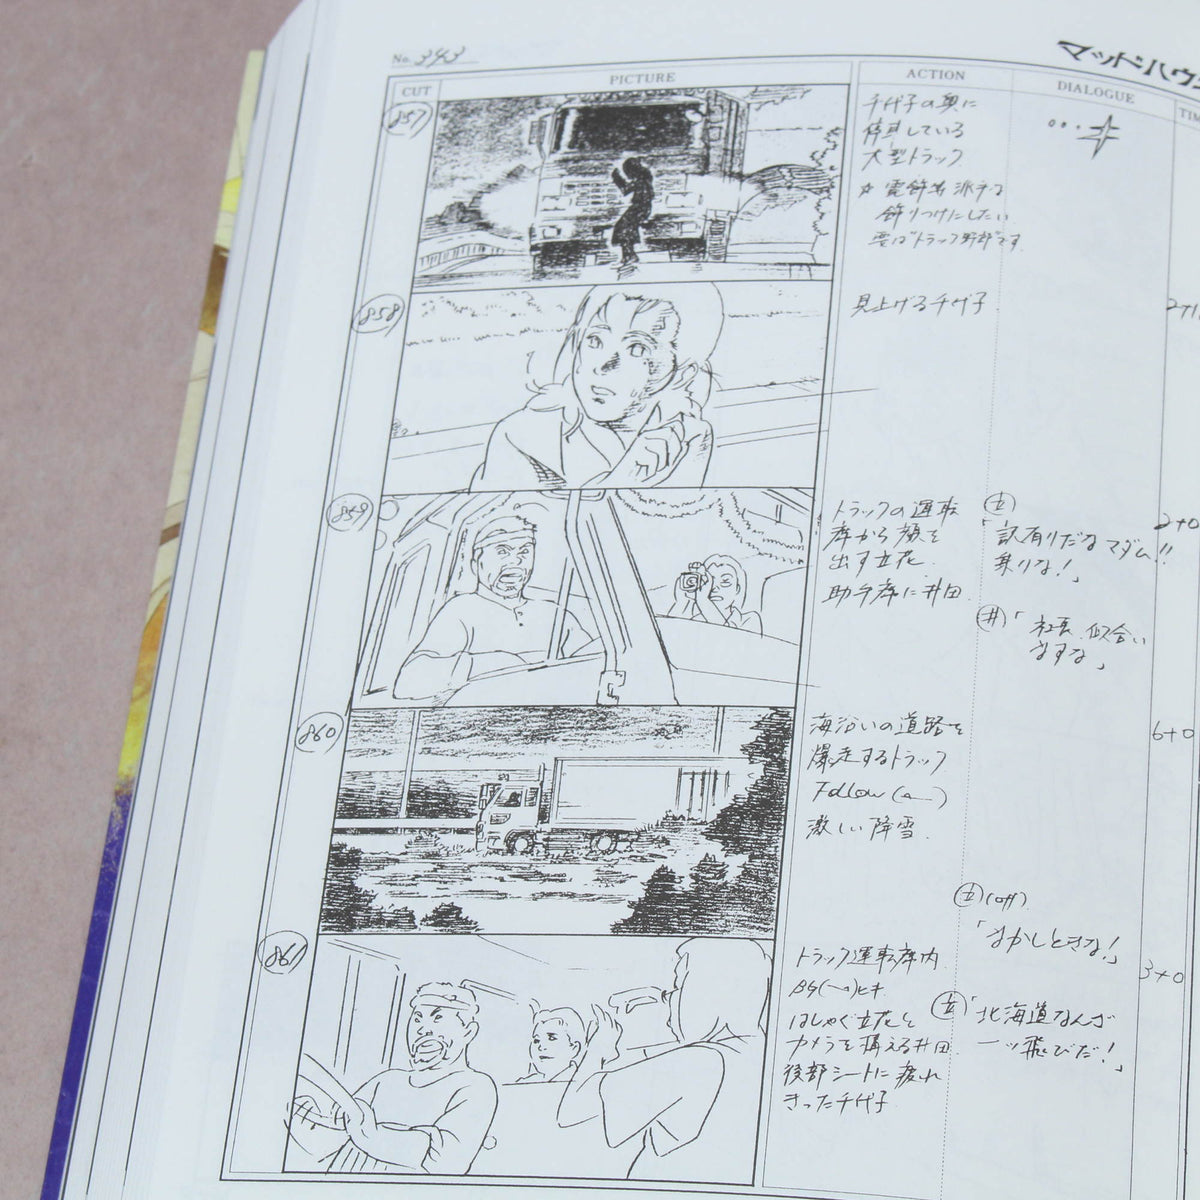 No. 343
マッドハウ
CUT
PICTURE
ACTION
DIALOGUE
TIM
857
千代子の奥に
停車している
大型トラック
電飾も派手な
飾りつけにしたい
要はトラック野郎です.
858
見上げる千代子
859
トラックの運転
席から顔を
出す立花.
助手席に井田.
立
「訳有りだなマダム!!
乗りな!」
井「社長、似合い
ますな」
2+0
860
海沿いの道路を
爆走するトラック
Follow
激しい降雪.
6+0
立 (off)
「まかしときな!」
861
トラック運転席内
BG ヒキ
はしゃぐ立花と
カメラを構える井田.
後部シートに疲れ
きった千代子
3+0
立「北海道なんざ
一ッ飛びだ!」